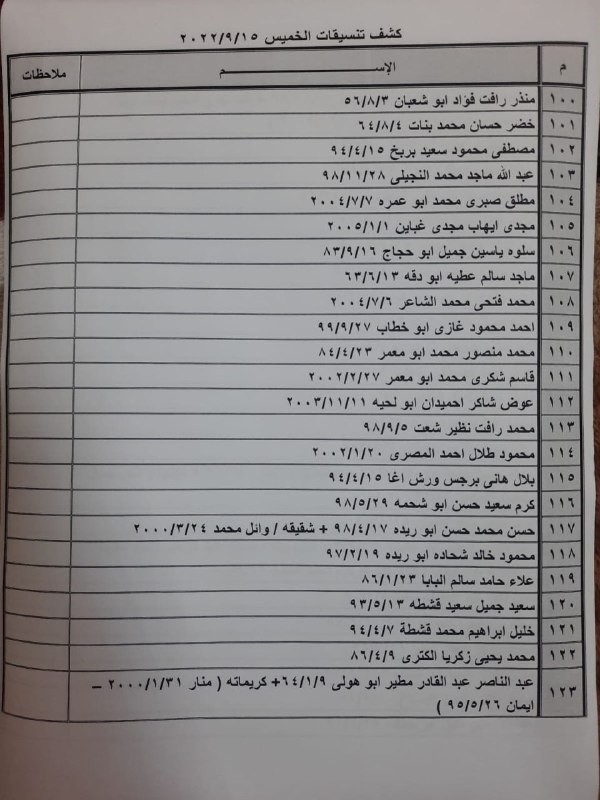 كشف تنسيقات الخميس ٢٠٢٢/٩/١٥
م الإســــم ملاحظات
١٠٠ منذر رافت فؤاد ابو شعبان ٥٦/٨/٣
١٠١ خضر حسان محمد بنات ٦٤/٨/٤
١٠٢ مصطفى محمود سعيد بربخ ٩٤/٤/١٥
١٠٣ عبد الله ماجد محمد النجيلى ٩٨/١١/٢٨
١٠٤ مطلق صبرى محمد ابو عمره ٢٠٠٤/٧/٧
١٠٥ مجدى ايهاب مجدى غباين ٢٠٠٥/١/١
١٠٦ سلوه ياسين جميل ابو حجاج ٨٣/٩/١٦
١٠٧ ماجد سالم عطيه ابو دقه ٦٣/٦/١٣
١٠٨ محمد فتحى محمد الشاعر ٢٠٠٤/٧/٦
١٠٩ احمد محمود غازى ابو خطاب ٩٩/٩/٢٧
١١٠ محمد منصور محمد ابو معمر ٨٤/٤/٢٣
١١١ قاسم شكرى محمد ابو معمر ٢٠٠٢/٢/٢٧
١١٢ عوض شاكر احميدان ابو لحيه ٢٠٠٣/١١/١١
١١٣ محمد رافت نظير شعت ٩٨/٩/٥
١١٤ محمود طلال احمد المصرى ٢٠٠٢/١/٢٠
١١٥ بلال هانى برجس ورش اغا ٩٤/٤/١٥
١١٦ كرم سعيد حسن ابو شحمه ٩٨/٥/٢٩
١١٧ حسن محمد حسن ابو ريده ٩٨/٤/١٧ + شقيقه / وائل محمد ٢٠٠٠/٣/٢٤
١١٨ محمود خالد شحاده ابو ريده ٩٧/٢/١٩
١١٩ علاء حامد سالم البابا ٨٦/١/٢٣
١٢٠ سعيد جميل سعيد قشطه ٩٣/٥/١٣
١٢١ خليل ابراهيم محمد قشطة ٩٤/٤/٧
١٢٢ محمد يحيى زكريا الكترى ٨٦/٤/٩
١٢٣ عبد الناصر عبد القادر مطير ابو هولى ٦٤/١/٩+ كريماته ( منار ٢٠٠٠/١/٣١ –
ايمان ٩٥/٥/٢٦ )